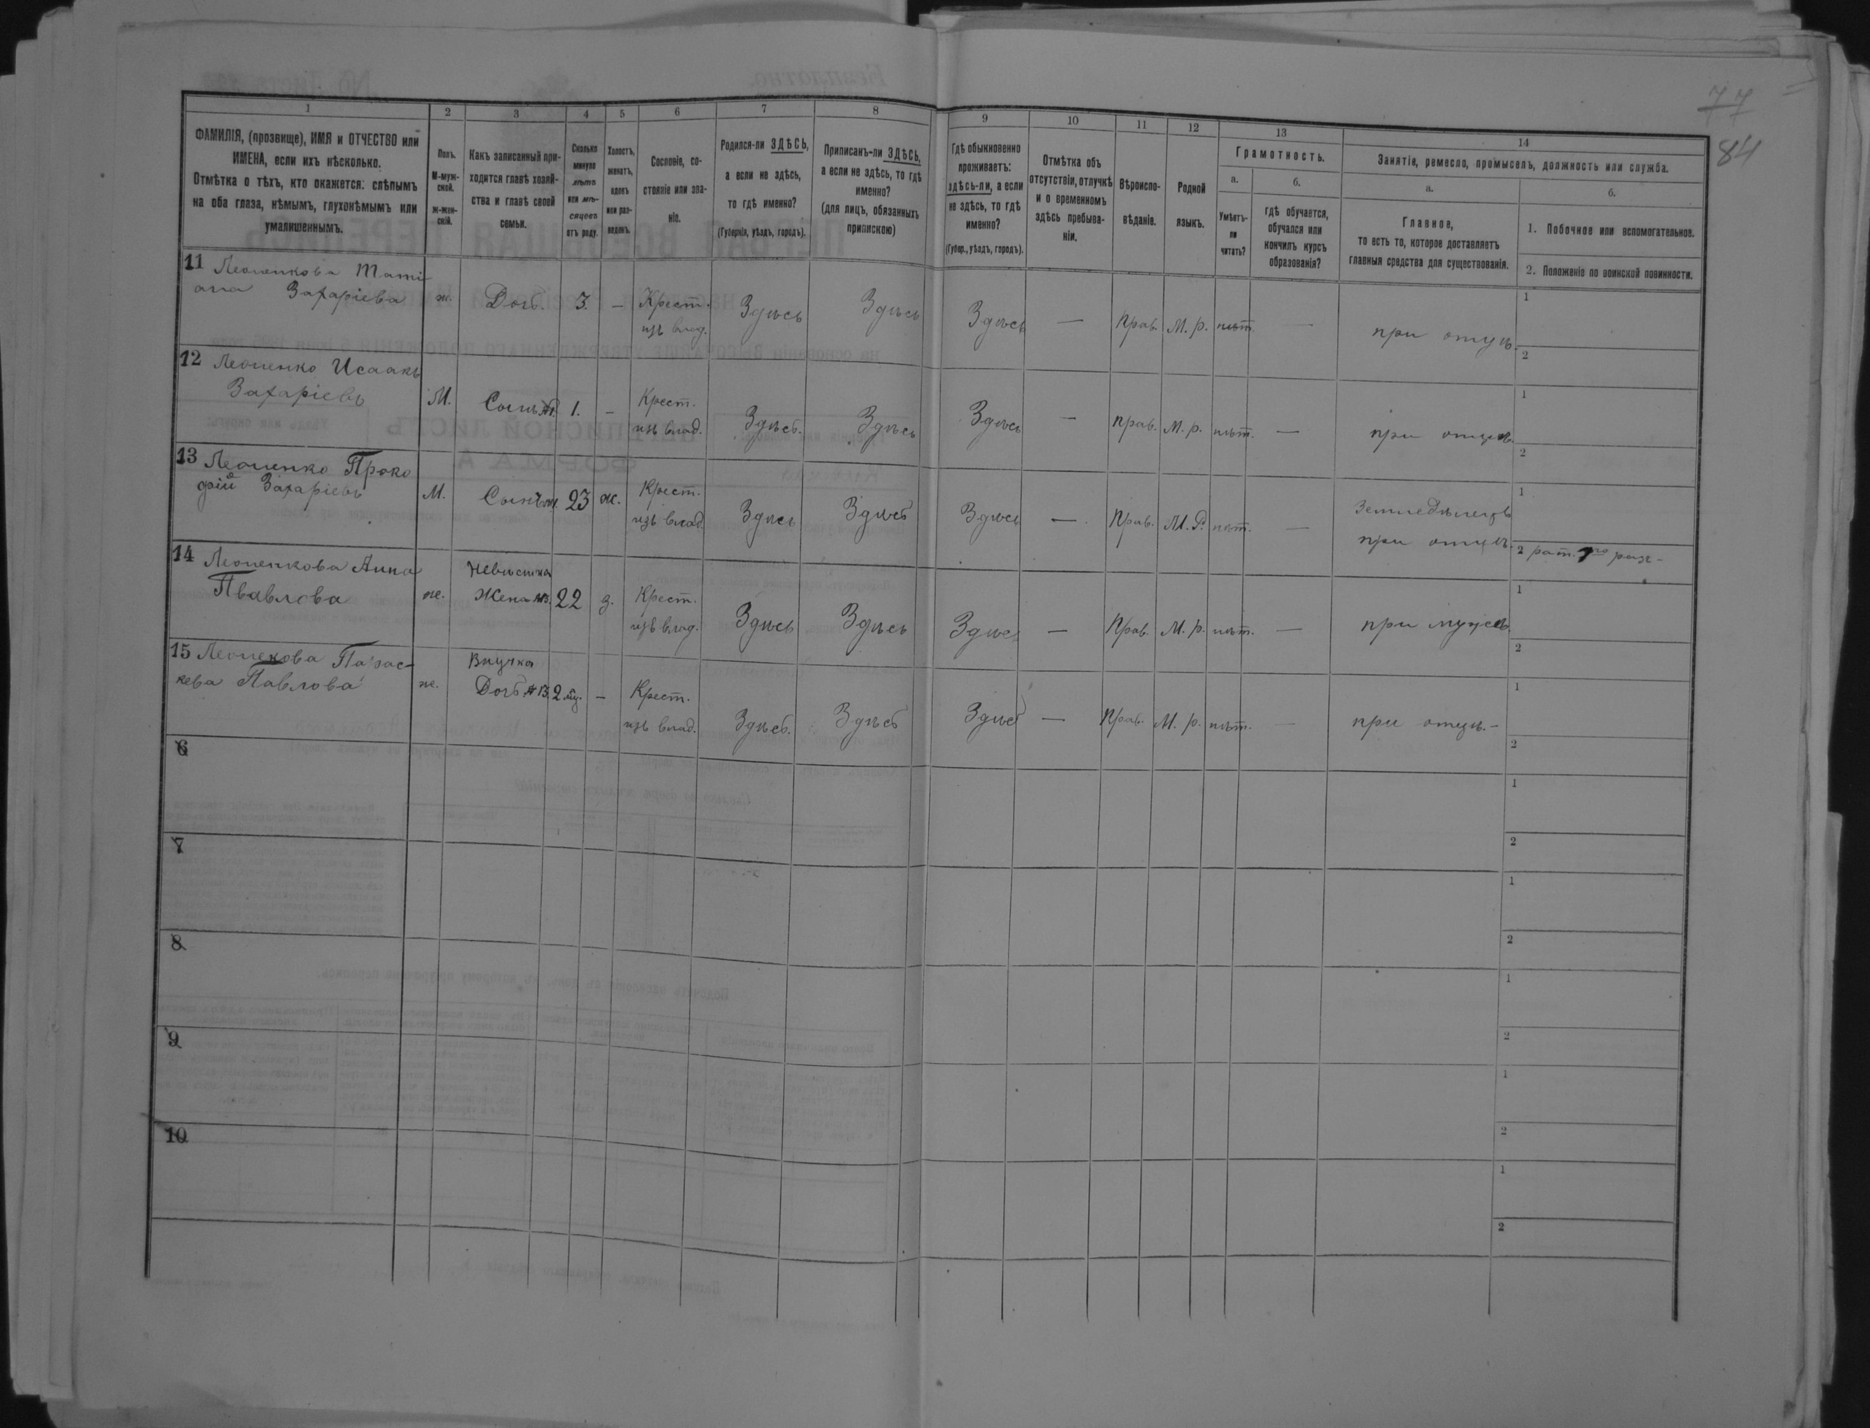 77
84
1 2 3 4 5 6 7 8 9 10 11 12 13 14
ФАМИЛІЯ, (прозвище), ИМЯ и ОТЧЕСТВО или
ИМЕНА, если ихъ нѣсколько.
Отмѣтка о тѣхъ, кто окажется: слѣпымъ
на оба глаза, нѣмымъ, глухонѣмымъ или
умалишеннымъ.
Полъ.
М-муж-
ской.
Ж-жен-
скій.
Какъ записанный при-
ходится главѣ хозяй-
ства и главѣ своей
семьи.
Сколько
минуло
лѣтъ
или мѣ-
сяцевъ
отъ роду.
Холостъ,
женатъ,
вдовъ
или раз-
веденъ.
Сословіе, со-
стояніе или зва-
ніе.
Родился-ли ЗДѢСЬ,
а если не здѣсь,
то гдѣ именно?
(Губернія, уѣздъ, городъ).
Приписанъ-ли ЗДѢСЬ,
а если не здѣсь, то гдѣ
именно?
(для лицъ, обязанныхъ
припискою)
Гдѣ обыкновенно
проживаетъ:
здѣсь-ли, а если
не здѣсь, то гдѣ
именно?
(Губер., уѣздъ, городъ).
Отмѣтка объ
отсутствіи, отлучкѣ
и о временномъ
здѣсь пребыва-
ніи.
Вѣроиспо-
вѣданіе.
Родной
языкъ.
Грамотность.
а.
Умѣетъ-
ли
читать?
б.
гдѣ обучается,
обучался или
кончилъ курсъ
образованія?
Занятіе, ремесло, промыселъ, должность или служба.
а.
Главное,
то есть то, которое доставляетъ
главныя средства для существованія.
б.
1. Побочное или вспомогательное.
2. Положеніе по воинской повинности.
11 Татi
ана Захаріева ж. Дочь. 3. — Крест.
изъ влад. Здѣсь Здѣсь Здѣсь — Прав. М. р. нѣт. — при отцѣ.
1
2
12 Исаакъ
Захаріевъ М. Сынъ 1. — Крест.
изъ влад. Здѣсь. Здѣсь Здѣсь — Прав. М. р. нѣт. — при отцѣ.
1
2
13 Проко
фій Захаріевъ М. Сынъ 23 ж. Крест.
изъ влад. Здѣсь Здѣсь Здѣсь — Прав. М. Р. нѣт. — Земледѣлецъ
при отцѣ.
1
2 рат. 1го раз-
14 Анна
Павлова ж. Невѣстка
Жена 22 з. Крест.
изъ влад. Здѣсь Здѣсь Здѣсь — Прав. М. р. нѣт. — при мужѣ.
1
2
15 Парас-
кева Павлова ж. Внучка
Дочь №13 2 мц. — Крест.
изъ влад. Здѣсь. Здѣсь Здѣсь — Прав. М. р. нѣт. — при отцѣ. —
1
2
6
1
2
7
1
2
8
1
2
9
1
2
10
1
2